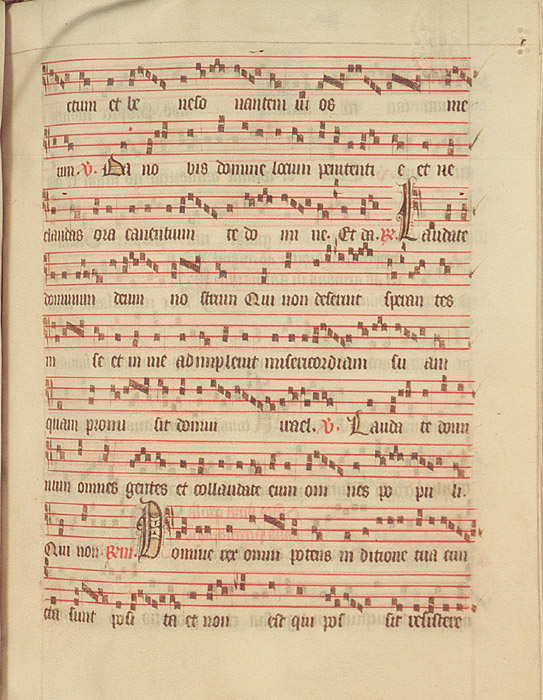 ctum et be neso nantem in os me
um. V. Da no bis domine locum penitenti e et ne
claudas ora canentium te do mi ne. Et da. R. Laudate
dominum deum nostrum Qui non deserit speran tes
in se et in me adimplevit misericordiam su am
quam promi sit domui israel. V. Lauda te domi
num omnes gentes et collaudate eum om nes po pu li.
Qui non. Rm. Domine rex omni potens in ditione tua cun
cta sunt posi ta et non est qui pos sit resistere